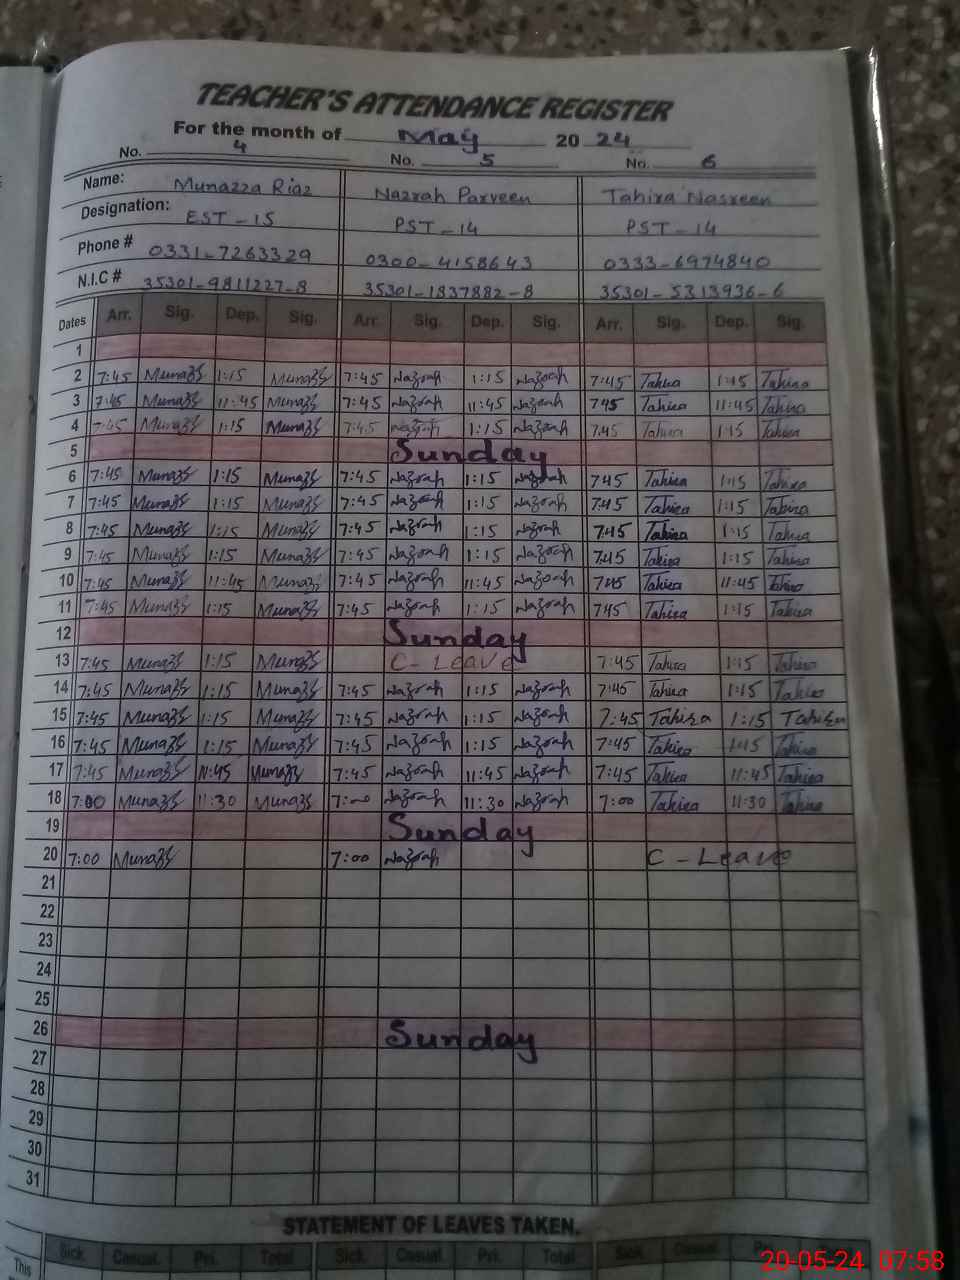 TEACHER'S ATTENDANCE REGISTER
For the month of May 20 24
No. 4 No. 5 No. 6
Name: Munazza Riaz Nazrah Parveen Tahira Nasreen
Designation: EST-15 PST-14 PST-14
Phone # 0331-7263329 0300-4158643 0333-6974840
N.I.C # 35301-9811227-8 35301-1837882-8 35301-5313936-6
Dates Arr. Sig. Dep. Sig. Arr. Sig. Dep. Sig. Arr. Sig. Dep. Sig.
1
2 7:45 Munazza 1:15 Munazza 7:45 Nazrah 1:15 Nazrah 7:45 Tahira 1:15 Tahira
3 7:45 Munazza 11:45 Munazza 7:45 Nazrah 11:45 Nazrah 7:45 Tahira 11:45 Tahira
4 7:45 Munazza 1:15 Munazza 7:45 Nazrah 1:15 Nazrah 7:45 Tahira 1:15 Tahira
5 Sunday
6 7:45 Munazza 1:15 Munazza 7:45 Nazrah 1:15 Nazrah 7:45 Tahira 1:15 Tahira
7 7:45 Munazza 1:15 Munazza 7:45 Nazrah 1:15 Nazrah 7:45 Tahira 1:15 Tahira
8 7:45 Munazza 1:15 Munazza 7:45 Nazrah 1:15 Nazrah 7:45 Tahira 1:15 Tahira
9 7:45 Munazza 1:15 Munazza 7:45 Nazrah 1:15 Nazrah 7:45 Tahira 1:15 Tahira
10 7:45 Munazza 11:45 Munazza 7:45 Nazrah 11:45 Nazrah 7:45 Tahira 11:45 Tahira
11 7:45 Munazza 1:15 Munazza 7:45 Nazrah 1:15 Nazrah 7:45 Tahira 1:15 Tahira
12 Sunday
13 7:45 Munazza 1:15 Munazza C-Leave 7:45 Tahira 1:15 Tahira
14 7:45 Munazza 1:15 Munazza 7:45 Nazrah 1:15 Nazrah 7:45 Tahira 1:15 Tahira
15 7:45 Munazza 1:15 Munazza 7:45 Nazrah 1:15 Nazrah 7:45 Tahira 1:15 Tahira
16 7:45 Munazza 1:15 Munazza 7:45 Nazrah 1:15 Nazrah 7:45 Tahira 1:15 Tahira
17 7:45 Munazza 11:45 Munazza 7:45 Nazrah 11:45 Nazrah 7:45 Tahira 11:45 Tahira
18 7:00 Munazza 11:30 Munazza 7:00 Nazrah 11:30 Nazrah 7:00 Tahira 11:30 Tahira
19 Sunday
20 7:00 Munazza 7:00 Nazrah C-Leave
21
22
23
24
25
26 Sunday
27
28
29
30
31
STATEMENT OF LEAVES TAKEN.
This Sick. Casual. Pri. Total Sick. Casual. Pri. Total Sick. Casual.
20-05-24 07:58